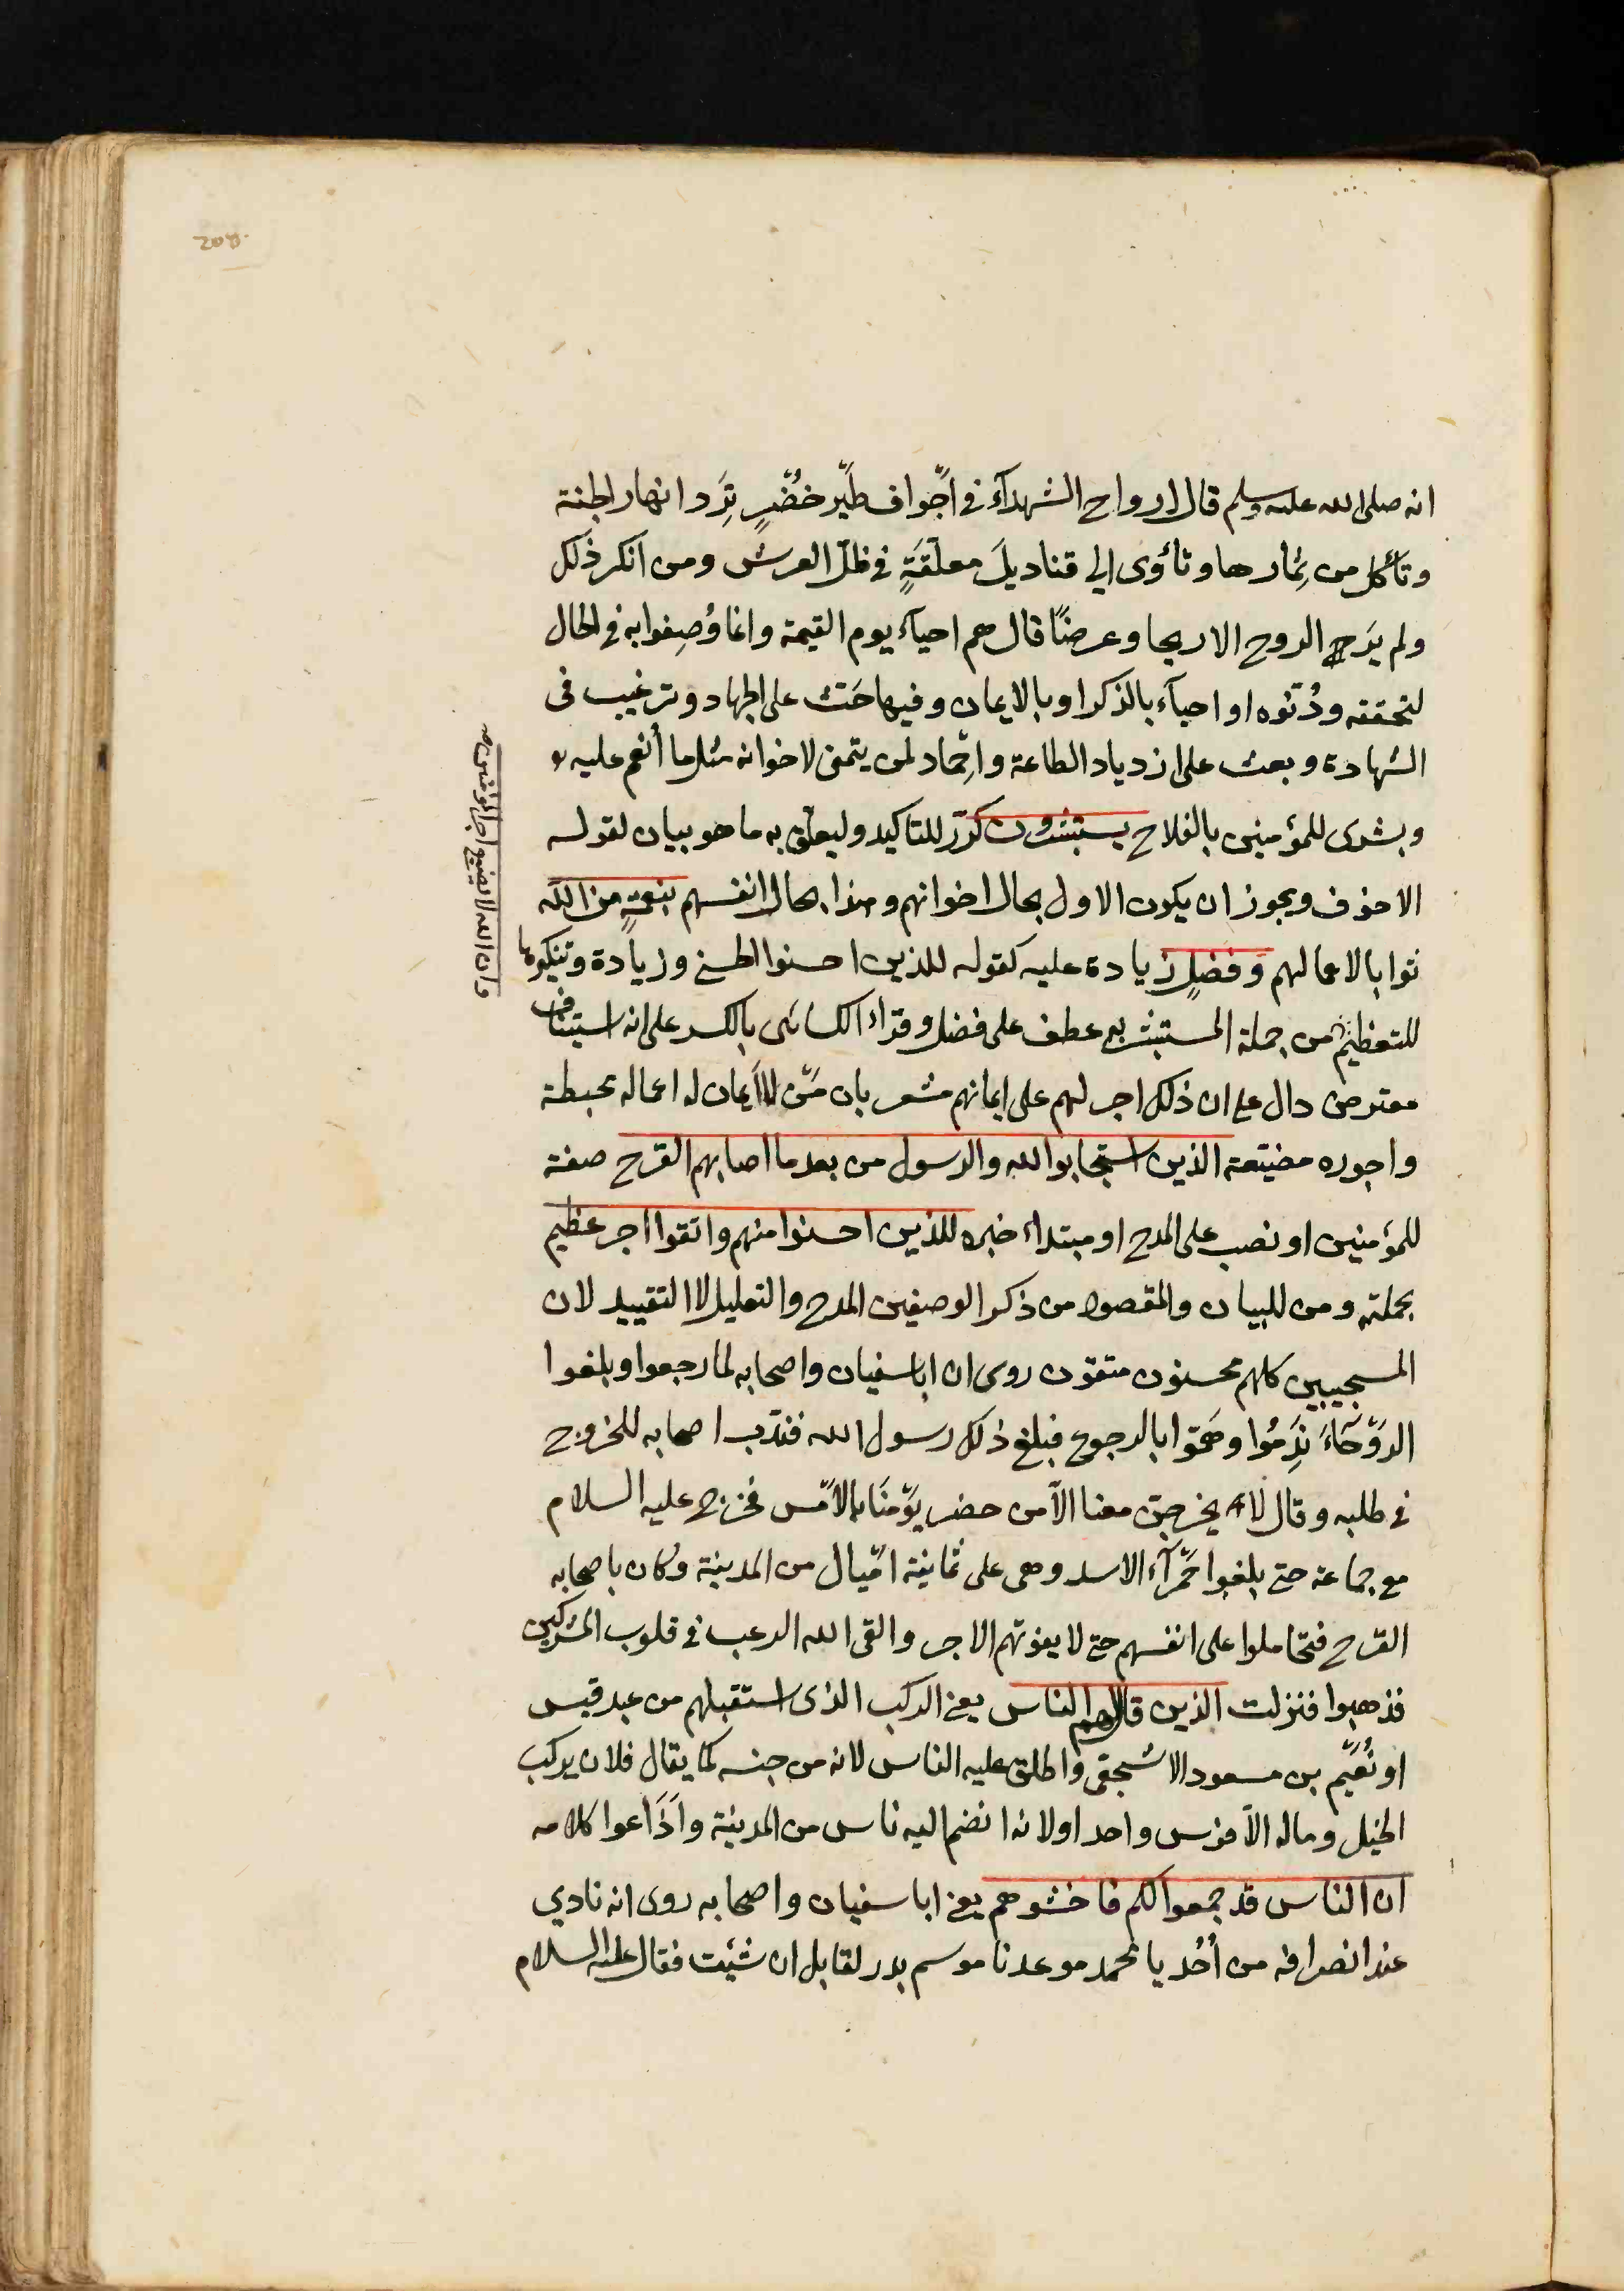 انه صلى الله عليه وسلم قال ارواح الشهدآء في اجْواف طَيْر خُضْرٍ تَرِد انهار الجنة
وتأكل من ثِمارها وتأوى الي قناديلَ معلّقةٍ في ظلّ العرش ومن انكر ذلك
ولم يَرَ الروح الا ريحا وعرضًا قال هم احيآء يوم القيمة وانما وُصِفوا به في الحال
لتحققه ودُنُوّه او احيآء بالذكر او بالايمان وفيها حَثّ على الجهاد وترغيب فى
الشهادة وبعث على ازدياد الطاعة واحماد لمن يتمنى لاخوانه مثل ما أنعم عليه
وبشرى للمؤمنين بالفلاح يستبشرون كرّر للتاكيد وليعلّق به ما هو بيان لقوله
الا خوف ويجوز ان يكون الاول بحال اخوانهم وهذا بحال انفسهم بنعمةٍ من الله
ثوابا لاعمالهم وفضلٍ زيادة عليه كقوله للذين احسنوا الحسنى وزيادة وتنكيرهما
للتعظيم من جملة المستبشر به عطف على فضل وقرأ الكسائى بالكسر على انه استيناف
معترض دال على ان ذلك اجر لهم على ايمانهم مشعر بان مَن لا ايمان له اعماله محبطة
واجوره مضيّعة الذين استجابوا لله والرسول من بعد ما اصابهم القرح صفة
للمؤمنين او نصب على المدح او مبتداء خبره للذين احسنوا منهم واتقوا اجر عظيم
بجملته ومن للبيان والمقصود من ذكر الوصفين المدح والتعليل لا التقييد لان
المستجيبين كلهم محسنون متقون روى ان ابا سفيان واصحابه لما رجعوا وبلغوا
الرَوْحَاءَ نَدِمُوا وهَمّوا بالرجوع فبلغ ذلك رسول الله فندب اصحابه للخروج
في طلبه وقال لا يخرجَنّ معنا الاّ من حضر يَوْمَنَا بالامْس فخرج عليه السلام
مع جماعة حتى بلغوا حَمْرآء الاسد وهى على ثمانية اميال من المدينة وكان باصحابه
القرح فتحاملوا على انفسهم حتى لا يفوتهم الاجر والقى الله الرعب في قلوب المشركين
فذهبوا فنزلت الذين قال لهم الناس يعنى الركب الذى استقبلهم من عبد قيس
او نُعَيْم بن مسعود الاشجعى واطلق عليه الناس لانه من جنسه كما يقال فلان يركب
الخيل وماله الاّ فرس واحد او لانه انضم اليه ناس من المدينة واَذَاعوا كلامه
ان الناس قد جمعوا لكم فاخشوهم يعنى ابا سفيان واصحابه روى انه نادي
عند انصرافه من اُحُد يا محمد موعدنا موسم بدر لقابل ان شئت فقال عليه السلام
وان الله لا يضيع اجر المؤمنين